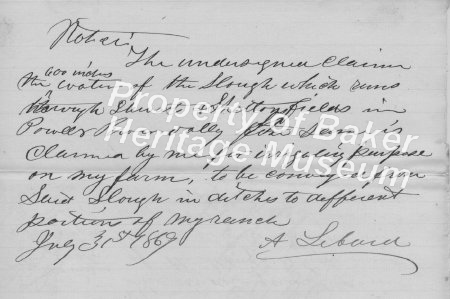 Notice
The undersigned Claims
600 inches
the water of the Slough which runs
through fields in
Powder River vally the Same is
Claimed by me for irrigating purpose
on my farm, to be conveyed from
Said Slough in ditchs to different
portions of my ranch
July 31st 1869
A
Property of Baker
Heritage Museum